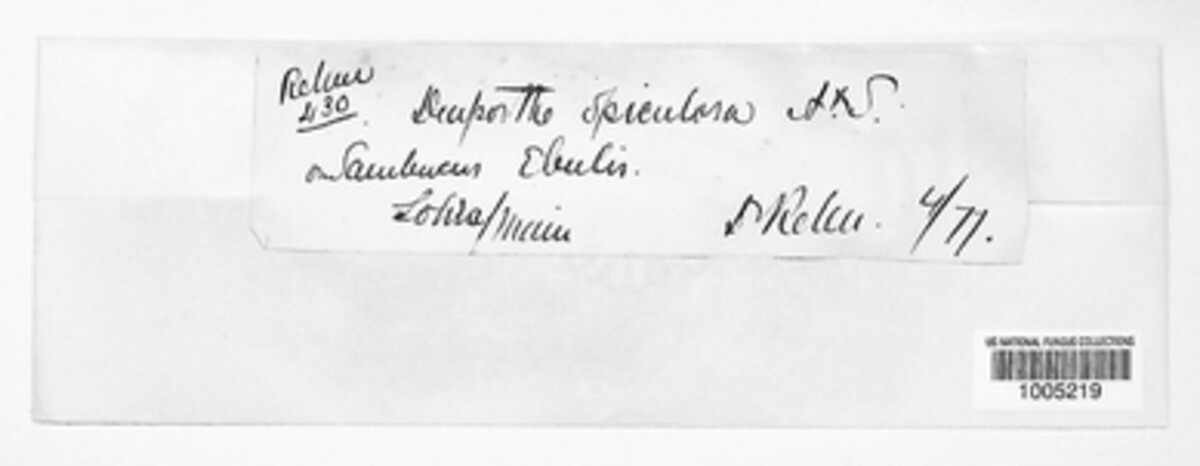 Rehm
430.
Diaporthe spiculosa A.&S.
on Sambucus Ebulis.
Lohr a/Main
Dr Rehm. 4/77.
US NATIONAL FUNGUS COLLECTIONS
1005219